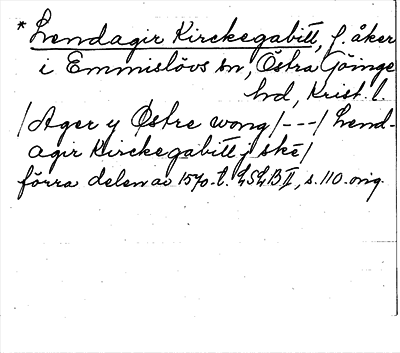 * Lvendagir Kirckegabitt, f. åker
i Emmislövs sn, Östra Göinge
hd, Krist. l.
/Ager y Østre wong/---/ Lvend-
agir Kirckegabitt j ske/
förra delen av 1570-t. LSLB II, s. 110. orig.